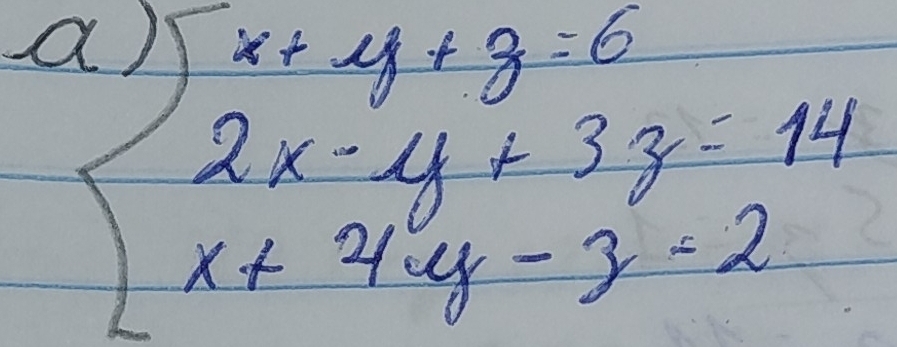 a) x + y + z = 6
2x - y + 3z = 14
x + 4y - z = 2